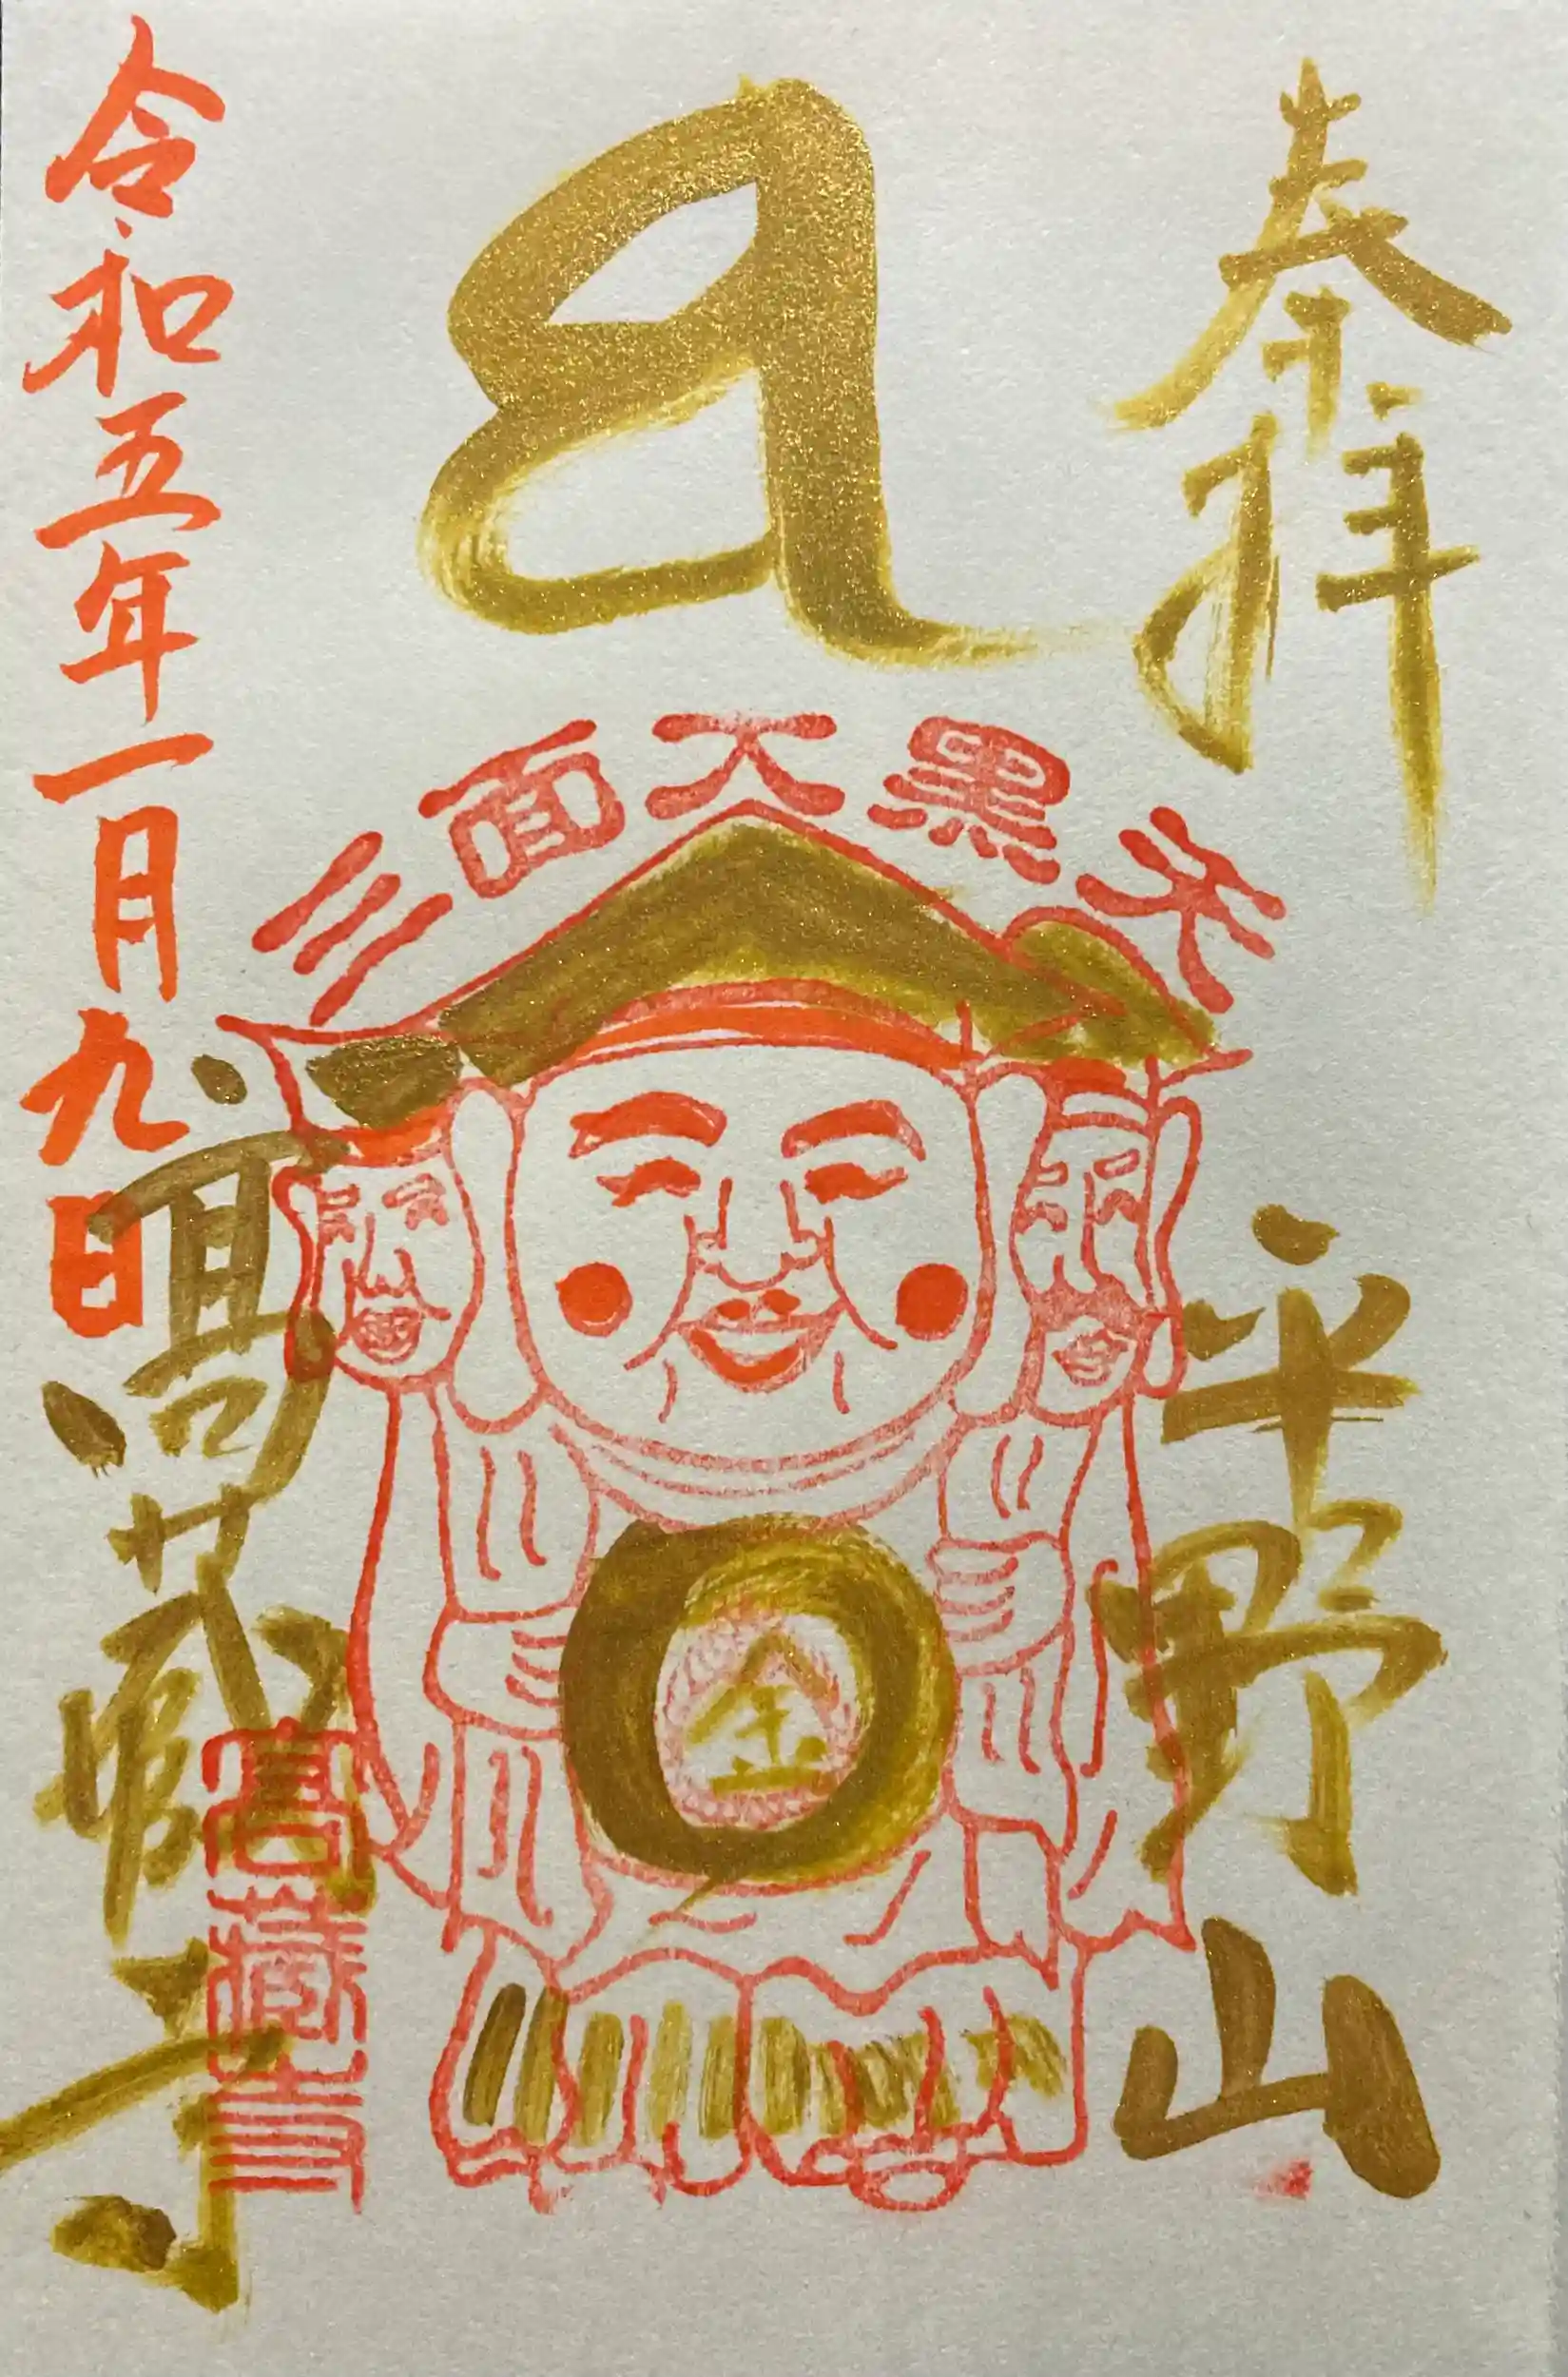 奉拝
平野山
𑖦
三面大黒天
金
令和五年一月九日
髙蔵寺
髙蔵寺